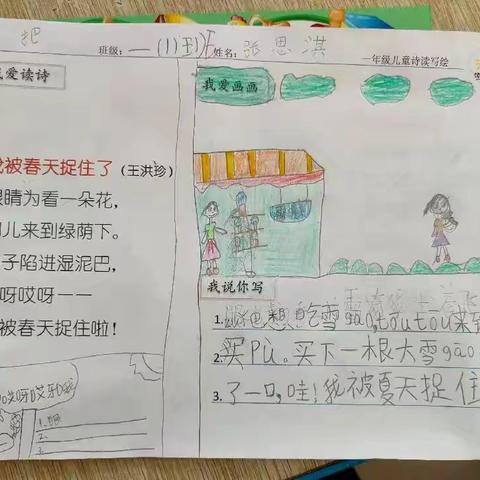 把
班级:一(1)班 姓名:张思淇 一年级儿童诗读写绘
我爱读诗
我被春天捉住了(王洪珍)
眼睛为看一朵花,
来到绿荫下。
子陷进湿泥巴,
呀哎呀一一
被春天捉住啦!
哎呀哎
1.
2.
3.
我爱画画
我说你写
1. 想吃雪gāo,tōu tōu来到
2. 买Pù。买下一根大雪gāo
3. 了一口,哇!我被夏天捉住